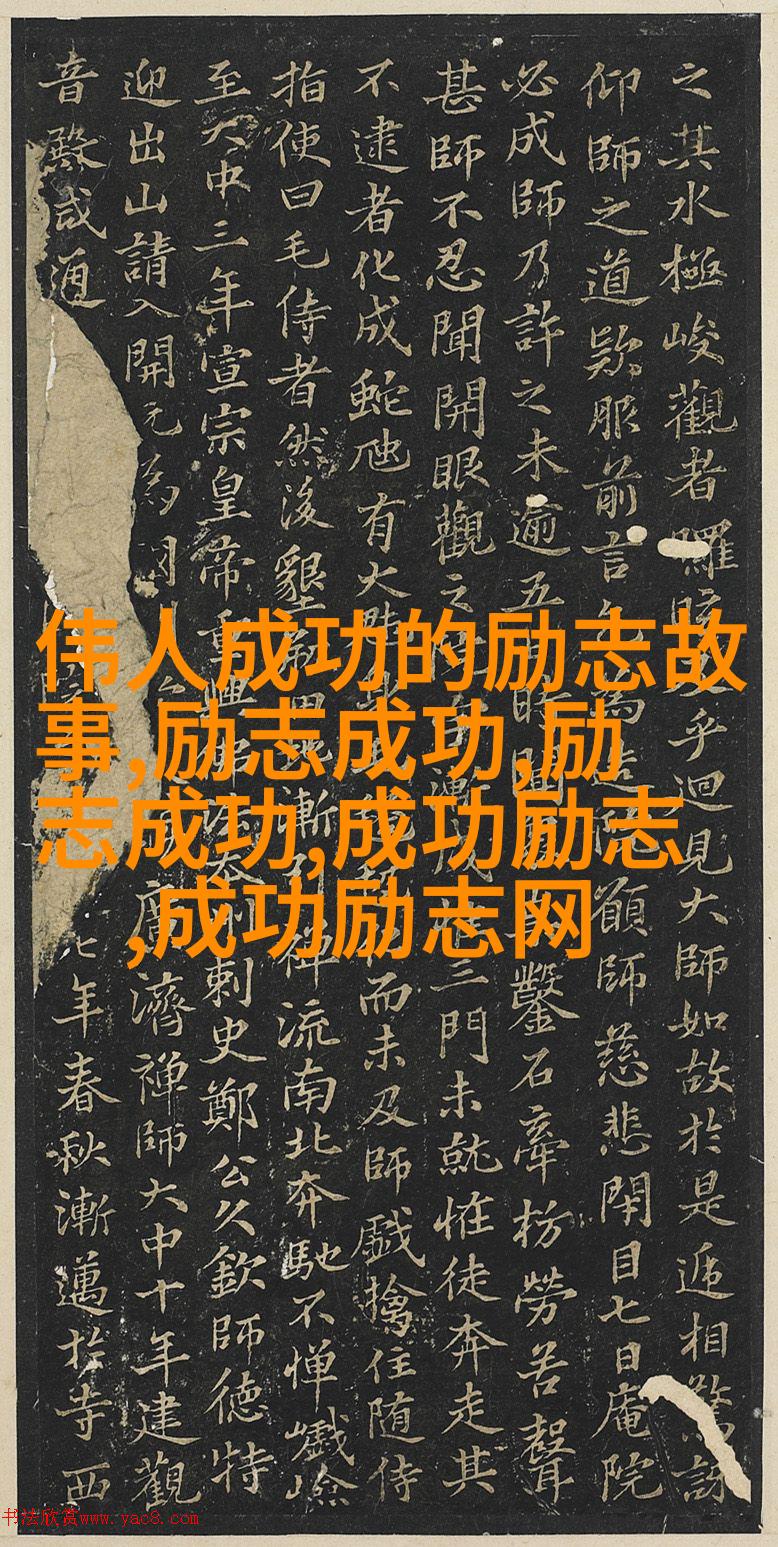 伟人成功的励志故
事,励志成功,励
志成功,成功励志
,成功励志网
之其水極峻觀者乎迴見大師如故於是遞相驚訝
仰師之道欵服前言造院願師慈悲閇目七日庵院
必成師乃許之未逾五時鑿石牽枋勞苦聲
甚師不忍聞開眼觀之三門未就恠徒奔走其
不逮者化成蛇虺有大而未及師戲擒住随侍
指使曰毛侍者然後墾漸引禅流南北奔馳不惮巇崄
至大中三年宣宗皇帝重興刺史鄭公久欽師德特
迎出山請入開元為濟禅師大中十年建觀
音殿咸通七年春秋漸邁於寺西
书法欣赏www.yac8.com